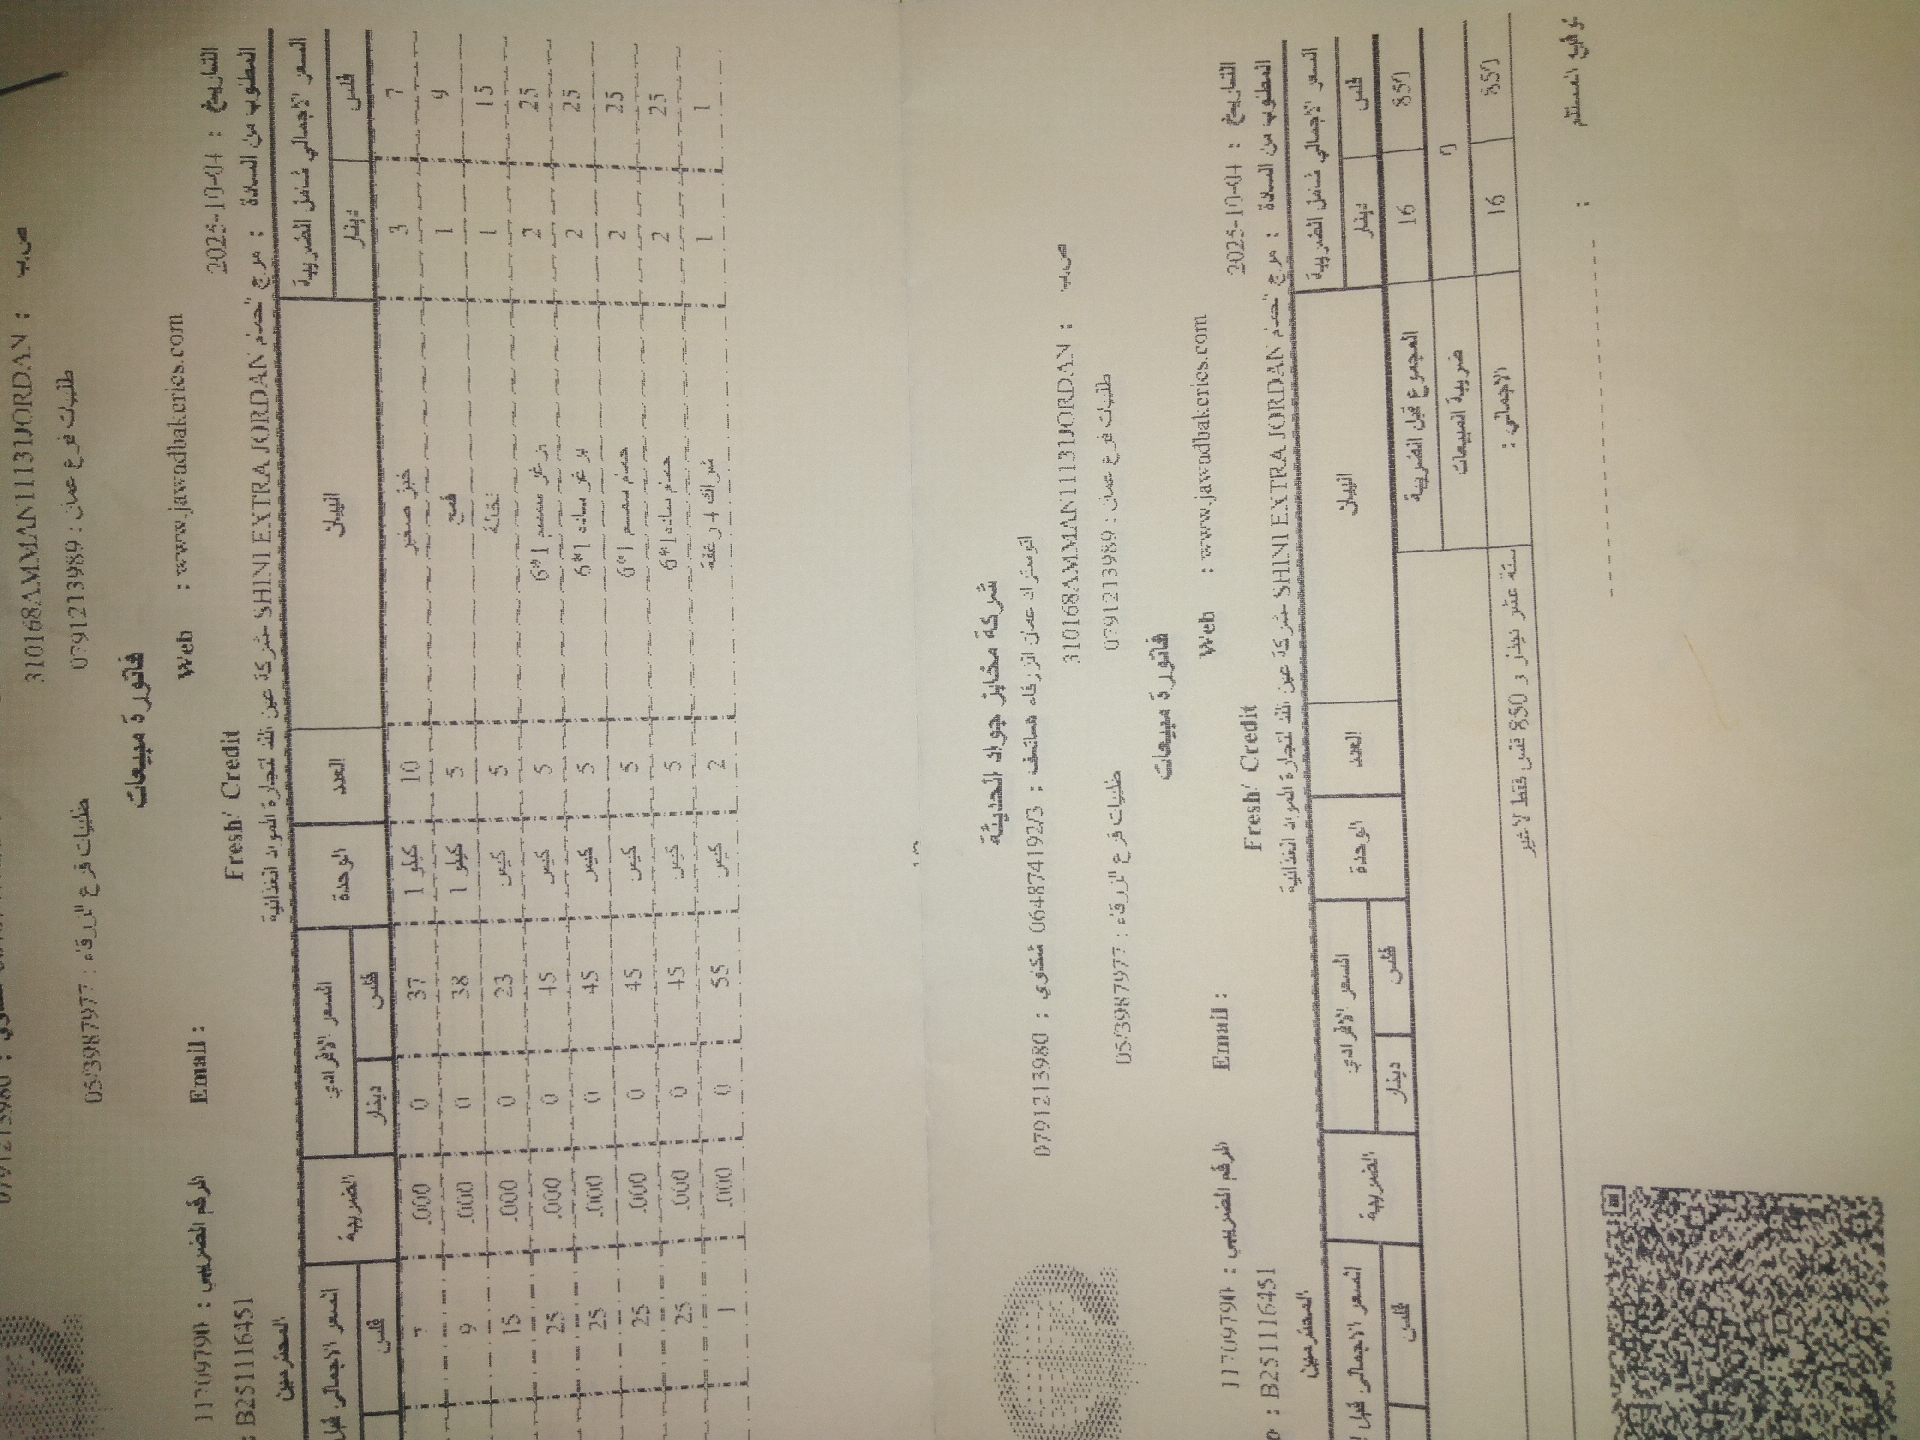 310168AMMAN11131JORDAN : ص.ب
طلبيات فرع الزرقاء : 05/3987977 طلبيات فرع عمان : 0791213989
فاتورة مبيعات
الرقم الضريبي : 11709790 Email : Web : www.jawadbakeries.com
: B251116451 Fresh/ Credit التاريخ : 2025-10-04
المطلوب من السادة : مرج الحمام SHINI EXTRA JORDAN شركة عين الله لتجارة المواد الغذائية المحترمين
السعر الاجمالي شامل الضريبة البيان العدد الوحدة السعر الافرادي الضريبة السعر الاجمالي قبل
فلس دينار فلس دينار فلس
7 3 خبز صغير 10 كيلو 1 37 0 .000 7
9 1 قمح 5 كيلو 1 38 0 .000 9
15 1 نخالة 5 كيس 23 0 .000 15
25 2 برغر سمسم 1*6 5 كيس 45 0 .000 25
25 2 برغر ساده 1*6 5 كيس 45 0 .000 25
25 2 حمام سمسم 1*6 5 كيس 45 0 .000 25
25 2 حمام ساده 1*6 5 كيس 45 0 .000 25
1 1 شراك 4 رغفة 2 كيس 55 0 .000 1
شركة مخابز جواد الحديثة
اتوستراد عمان الزرقاء هاتف : 064874192/3 شكاوي : 0791213980
310168AMMAN11131JORDAN : ص.ب
طلبيات فرع الزرقاء : 05/3987977 طلبيات فرع عمان : 0791213989
فاتورة مبيعات
الرقم الضريبي : 11709790 Email : Web : www.jawadbakeries.com
: B251116451 Fresh/ Credit التاريخ : 2025-10-04
المطلوب من السادة : مرج الحمام SHINI EXTRA JORDAN شركة عين الله لتجارة المواد الغذائية المحترمين
السعر الاجمالي شامل الضريبة البيان العدد الوحدة السعر الافرادي الضريبة السعر الاجمالي قبل
فلس دينار فلس دينار فلس
850 16 المجموع قبل الضريبة
0 ضريبة المبيعات
850 16 الاجمالي :
ستة عشر دينار و 850 فلس فقط لاغير
توقيع المستلم :